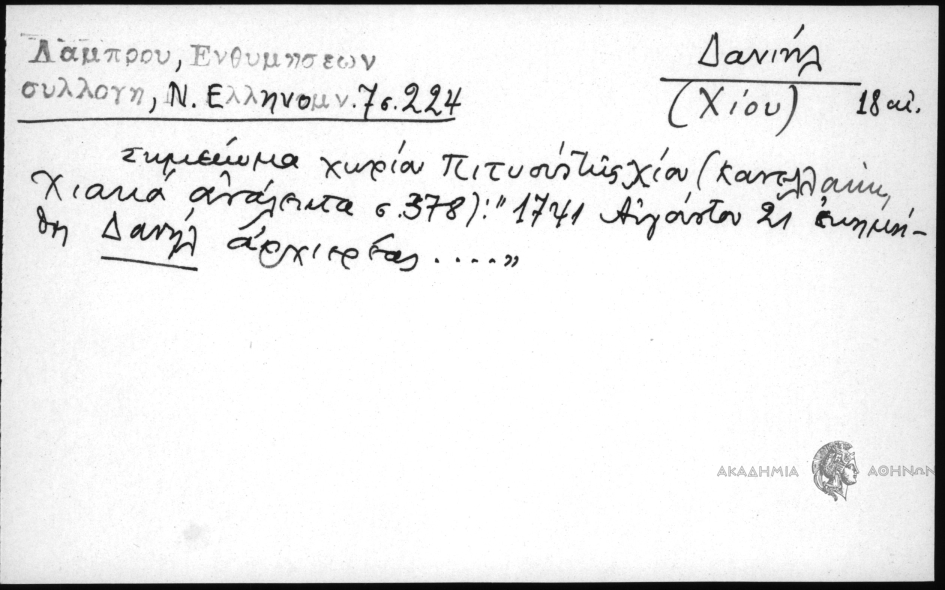 Λάμπρου, Ενθυμήσεων
συλλογή, Ν. Ελληνομν. 7 σ. 224
Δανιήλ
(Χίου)
18 αἰ.
σημείωμα χωρίου Πιτυοῦς τῆς Χίου (Κανελλάκη,
Χιακά ἀνάλεκτα σ. 378): "1741 Αὐγούστου 21 ἐκημή-
θη Δανήλ ἀρχιερέας ...."
ΑΚΑΔΗΜΙΑ ΑΘΗΝΩΝ